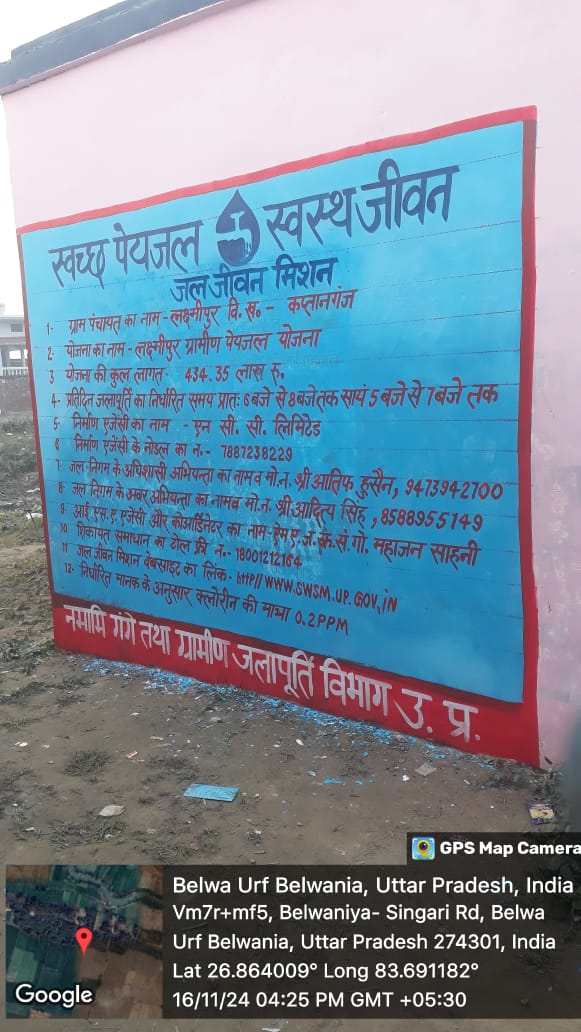 स्वच्छ पेयजल स्वस्थ जीवन
जल जीवन मिशन
1- ग्राम पंचायत का नाम - लक्ष्मीपुर वि.ख.- कप्तानगंज
2- योजना का नाम - लक्ष्मीपुर ग्रामीण पेयजल योजना
3 योजना की कुल लागत- 434.35 लाख रु.
4- प्रतिदिन जलापूर्ति का निर्धारित समय प्रातः 6 बजे से 8 बजे तक सायं 5 बजे से 7 बजे तक
5- निर्माण एजेंसी का नाम - एन सी. सी. लिमिटेड
6 निर्माण एजेंसी के नोडल का न.- 7887238229
7- जल निगम के अधिशासी अभियन्ता का नाम व मो.न. श्री आतिफ हुसैन, 9473942700
8- जल निगम के अवर अभियन्ता का नाम व मो.न. श्री आदित्य सिंह, 8588955149
9- आई.एस.ए. एजेंसी और कोआर्डिनेटर का नाम- एम.ए.ज.क.से.गो. महाजन साहनी
10 शिकायत समाधान का टोल फ्री न.- 18001212164
11 जल जीवन मिशन वेबसाइट का लिंक- http//WWW.SWSM.UP.GOV.iN
12- निर्धारित मानक के अनुसार क्लोरीन की मात्रा 0.2PPM
नमामि गंगे तथा ग्रामीण जलापूर्ति विभाग उ. प्र.
GPS Map Camera
Belwa Urf Belwania, Uttar Pradesh, India
Vm7r+mf5, Belwaniya- Singari Rd, Belwa
Urf Belwania, Uttar Pradesh 274301, India
Lat 26.864009° Long 83.691182°
16/11/24 04:25 PM GMT +05:30
Google